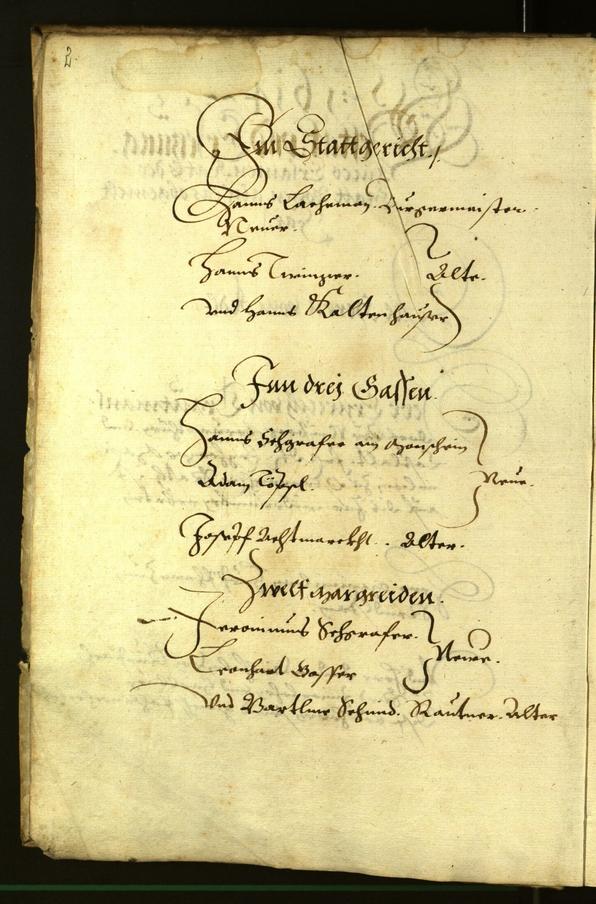 2.
Im Stattgericht /
Hanns Lachman. Burgermeister.
Neuer.
Hanns Zwinger. Alte.
vnd Hanns Kaltenhauser
Inn drej Gassen.
Hanns Schgrafer am Monschein
Adam Töpsl. Neue.
Joseph Achtmarckht. Alter.
Zwelfmargreiden.
Jeronimus Schgrafer.
Leonhart Gasser Newe.
Vnd Bartlme Schmid. Rautner. Alter